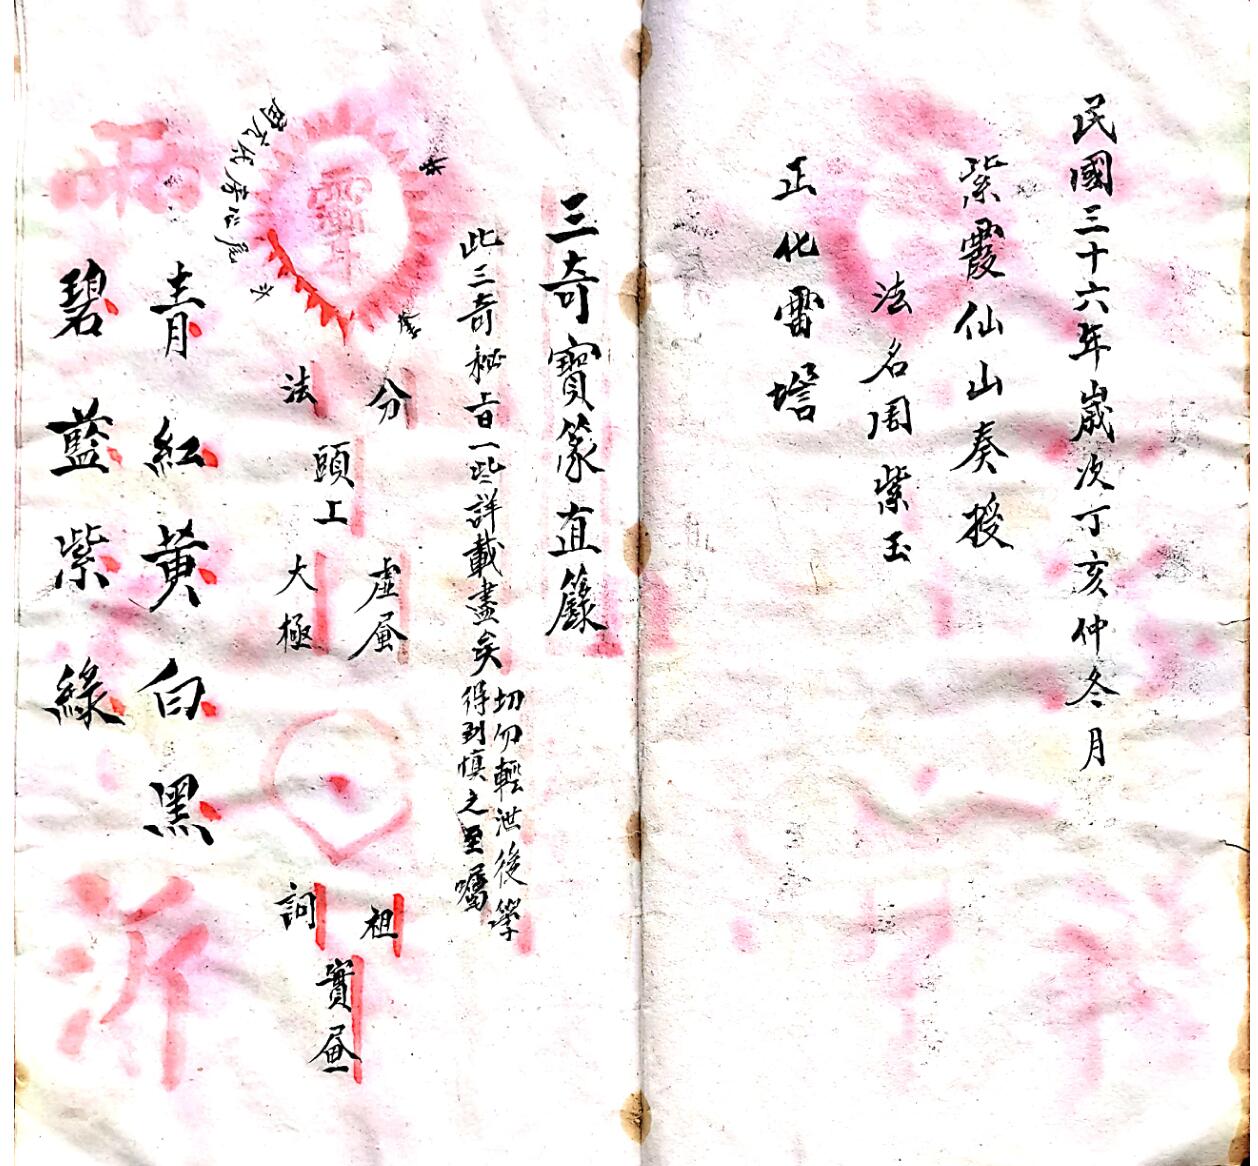 民國三十六年歲次丁亥仲冬月
紫霞仙山奏授
法名周紫玉
正化雷壇
三奇寶篆直籙
此三奇秘旨一些詳載盡矣
切勿輕泄後學
得到慎之至囑
分
法
頭工
虛
大極
祖
詞
實
青紅黄白黑
碧藍紫綠